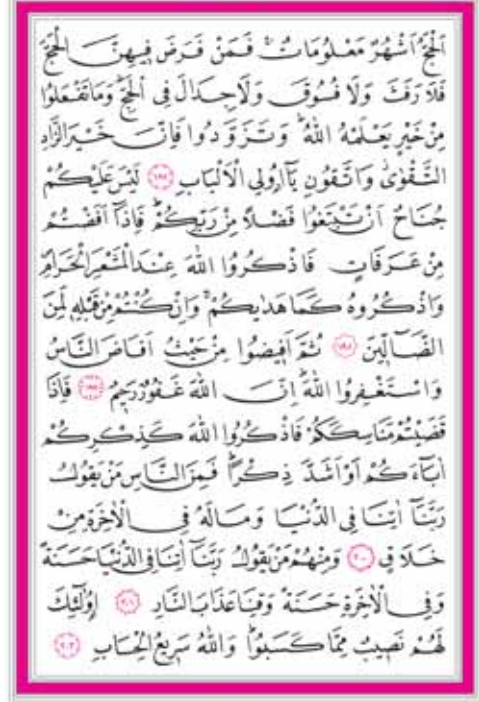 اَلْحَجُّ اَشْهُرٌ مَعْلُومَاتٌۚ فَمَنْ فَرَضَ فِيهِنَّ الْحَجَّ
فَلَا رَفَثَ وَلَا فُسُوقَ وَلَا جِدَالَ فِي الْحَجِّۜ وَمَا تَفْعَلُوا
مِنْ خَيْرٍ يَعْلَمْهُ اللّٰهُۜ وَتَزَوَّدُوا فَاِنَّ خَيْرَ الزَّادِ
التَّقْوٰىۘ وَاتَّقُونِ يَٓا اُولِي الْاَلْبَابِ ﴿١٩٧﴾ لَيْسَ عَلَيْكُمْ
جُنَاحٌ اَنْ تَبْتَغُوا فَضْلًا مِنْ رَبِّكُمْۜ فَاِذَٓا اَفَضْتُمْ
مِنْ عَرَفَاتٍ فَاذْكُرُوا اللّٰهَ عِنْدَ الْمَشْعَرِ الْحَرَامِۖ
وَاذْكُرُوهُ كَمَا هَدٰيكُمْۚ وَاِنْ كُنْتُمْ مِنْ قَبْلِه۪ لَمِنَ
الضَّٓالّ۪ينَ ﴿١٩٨﴾ ثُمَّ اَف۪يضُوا مِنْ حَيْثُ اَفَاضَ النَّاسُ
وَاسْتَغْفِرُوا اللّٰهَۜ اِنَّ اللّٰهَ غَفُورٌ رَح۪يمٌ ﴿١٩٩﴾ فَاِذَا
قَضَيْتُمْ مَنَاسِكَكُمْ فَاذْكُرُوا اللّٰهَ كَذِكْرِكُمْ
اٰبَٓاءَكُمْ اَوْ اَشَدَّ ذِكْرًاۜ فَمِنَ النَّاسِ مَنْ يَقُولُ
رَبَّنَٓا اٰتِنَا فِي الدُّنْيَا وَمَا لَهُ فِي الْاٰخِرَةِ مِنْ
خَلَاقٍ ﴿٢٠٠﴾ وَمِنْهُمْ مَنْ يَقُولُ رَبَّنَٓا اٰتِنَا فِي الدُّنْيَا حَسَنَةً
وَفِي الْاٰخِرَةِ حَسَنَةً وَقِنَا عَذَابَ النَّارِ ﴿٢٠١﴾ اُو۬لٰٓئِكَ
لَهُمْ نَص۪يبٌ مِمَّا كَسَبُواۜ وَاللّٰهُ سَر۪يعُ الْحِسَابِ ﴿٢٠٢﴾